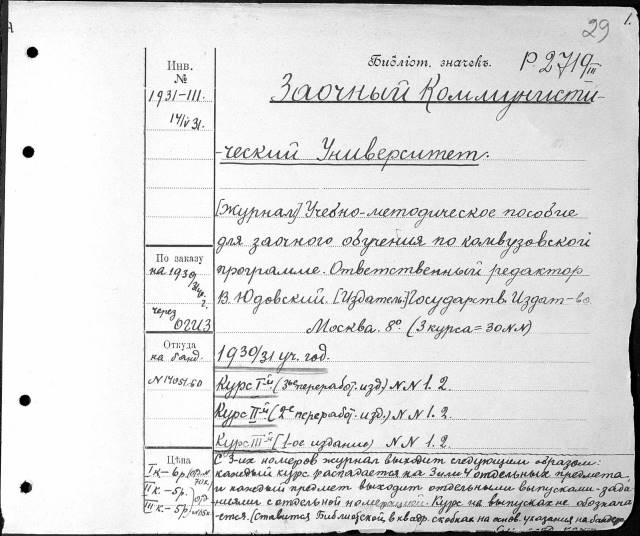 29
1.
Библіот. значекъ. Р. 2719/III
Инв.
№
1931-III.
14/V 31.
Заочный Коммунисти-
-ческий Университет.
[Журнал] Учебно-методическое пособие
для заочного обучения по комвузовской
программе. Ответственный редактор
В. Юдовский. [Издатель] Государств. Издат-во.
Москва. 8º. (3 курса = 30 NN)
По заказу
на 1930/31 уч. г.
через
ОГИЗ
Откуда
на банд.
N 14051.60
1930/31 уч. год.
Курс I-й (3-ье переработ. изд.) NN 1. 2.
Курс II-й (2-е переработ. изд.) NN 1. 2.
Курс III-й (1-ое издание) NN 1. 2.
Цѣна
I к – 6 р.
II к – 5 р.
III к – 5 р.
С 3-их номеров журнал выходит следующим образом:
каждый курс распадается на 3 или 4 отдельных предмета,
и каждый предмет выходит отдельными выпусками-зада-
ниями с отдельной нумерацией. Курс на выпусках не обознача-
ется. [Ставится Библиотекой в квадр. скобках на основ. указания на бандер.